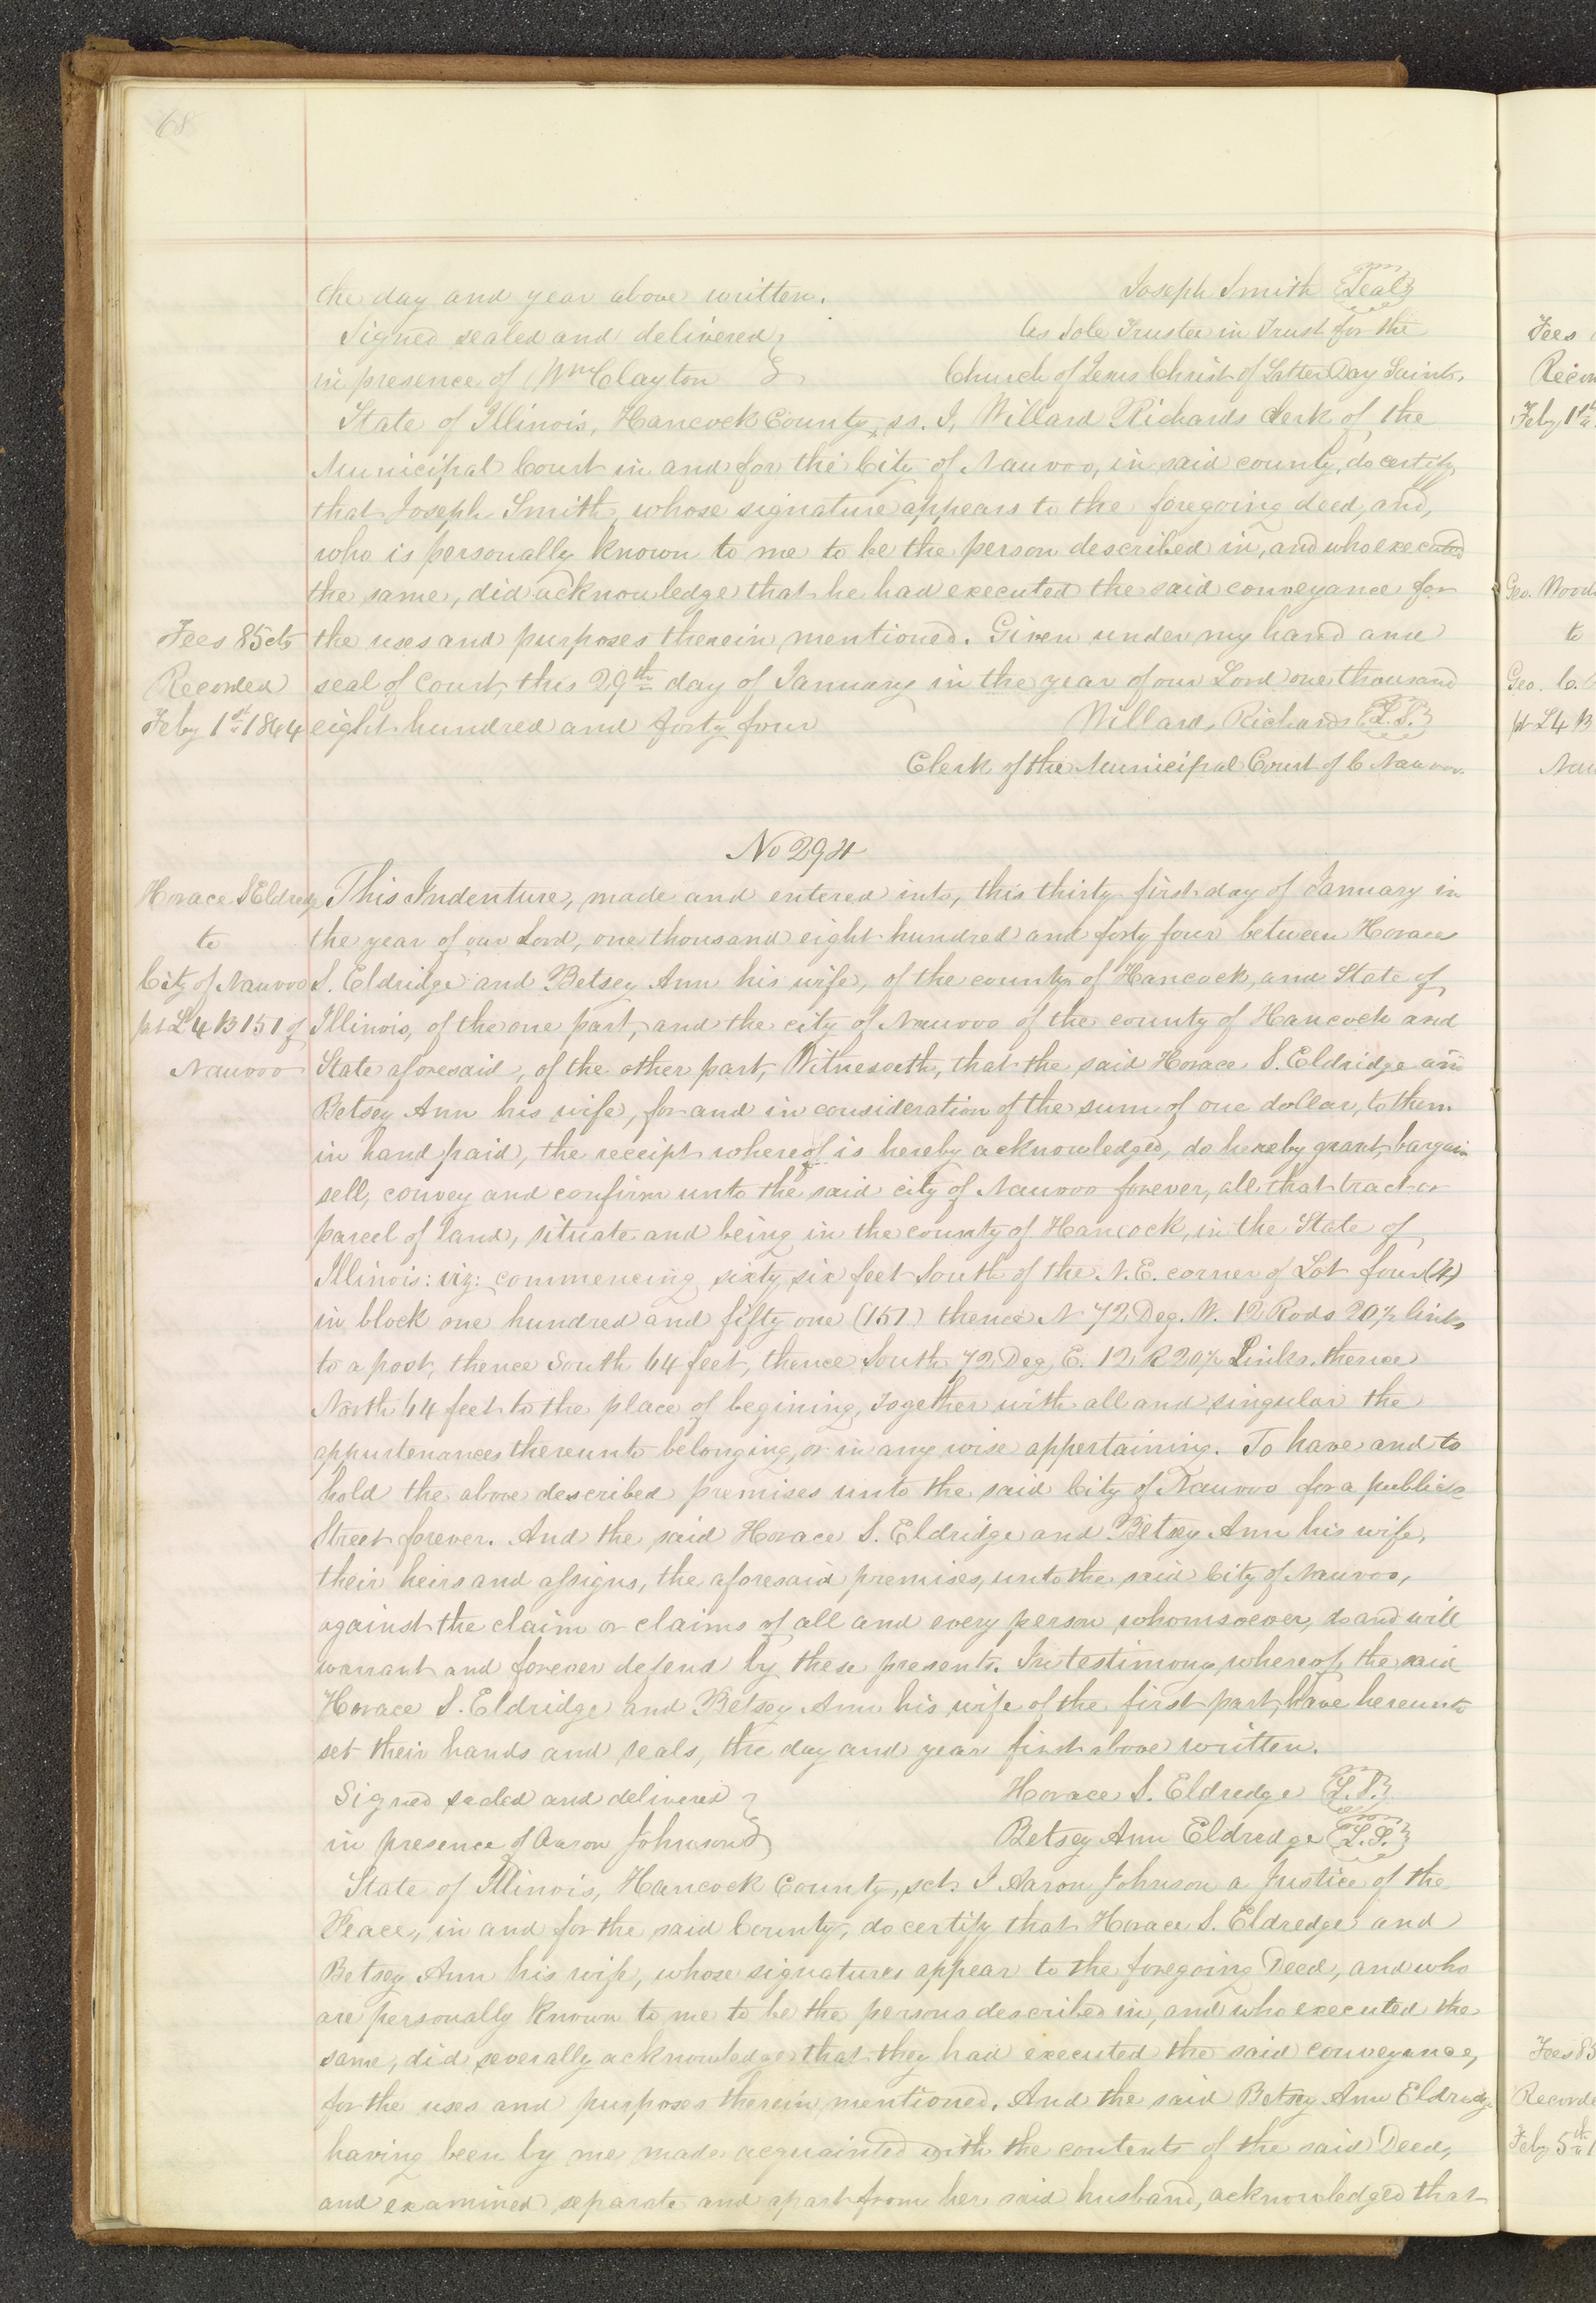 68
the day and year above written. Joseph Smith Seal
Signed sealed and delivered As Sole Trustee in Trust for the
in presence of Wm Clayton Church of Jesus Christ of Latter Day Saints.
State of Illinois, Hancock County, ss. I, Willard Richards Clerk of the
Municipal Court in and for the City of Nauvoo, in said county, do certify
that Joseph Smith, whose signature appears to the foregoing deed, and,
who is personally known to me to be the person described in, and who executed
the same, did acknowledge that he had executed the said conveyance for
Fees 85 cts the uses and purposes therein mentioned. Given under my hand and
Recorded seal of Court, this 29th day of January in the year of our Lord one thousand
Feby 1st 1844 eight hundred and forty four Willard Richards L.S.
Clerk of the Municipal Court of C Nauvoo.
No 294
Horace S Eldredg This Indenture, made and entered into, this thirty first day of January in
to the year of our Lord, one thousand eight hundred and forty four between Horace
City of Nauvoo S. Eldridge and Betsey Ann his wife, of the county of Hancock, and State of
pt L 4 B 151 of Illinois, of the one part, and the city of Nauvoo of the county of Hancock and
Nauvoo State aforesaid, of the other part, Witnesseth, that the said Horace S. Eldridge and
Betsey Ann his wife, for and in consideration of the sum of one dollar, to them
in hand paid, the receipt whereof is hereby acknowledged, do hereby grant, bargain
sell, convey and confirm unto the said city of Nauvoo forever, all that tract or
parcel of land, situate and being in the county of Hancock, in the State of
Illinois: viz: commencing sixty six feet South of the N.E. corner of Lot four (4)
in block one hundred and fifty one (151) thence N 72 Deg. W. 12 Rods 20½ links
to a post, thence South 64 feet, thence South 72 Deg. E. 12 R 20½ Links, thence
North 64 feet to the place of begining, together with all and singular the
appurtenances thereunto belonging, or in any wise appertaining. To have and to
hold the above described premises unto the said City of Nauvoo for a public
Street forever. And the said Horace S. Eldridge and Betsey Ann his wife,
their heirs and assigns, the aforesaid premises, unto the said City of Nauvoo,
against the claim or claims of all and every person whomsoever, do and will
warrant and forever defend by these presents. In testimony whereof, the said
Horace S. Eldridge and Betsey Ann his wife of the first part, have hereunto
set their hands and seals, the day and year first above written.
Signed sealed and delivered Horace S. Eldredge L.S.
in presence of Aaron Johnson Betsey Ann Eldredge L.S.
State of Illinois, Hancock County, sct. I Aaron Johnson a Justice of the
Peace, in and for the said County, do certify that Horace S. Eldredge and
Betsey Ann his wife, whose signatures appear to the foregoing Deed, and who
are personally known to me to be the persons described in, and who executed the
same, did severally acknowledge that they had executed the said conveyance,
for the uses and purposes therein mentioned. And the said Betsey Ann Eldredge
having been by me made acquainted with the contents of the said Deed,
and examined separate and apart from her said husband, acknowledged that
Fees
Feby 1st
Geo. Woods
to
Geo. C.
pt L4 B
Nau
Fees 83
Recorde
Feby 5th 1